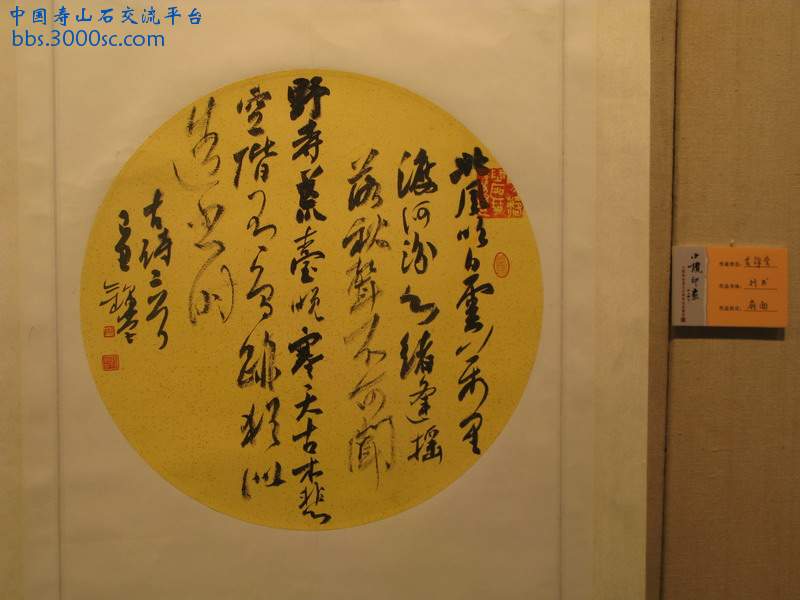 中国寿山石交流平台
bbs.3000sc.com
北風吹白雲萬里
渡河汾心緒逢搖
落秋聲不可聞
野寺荒臺晚寒天古木悲
空階有鳥跡猶似
造書時
古詩二首
行书
扇面